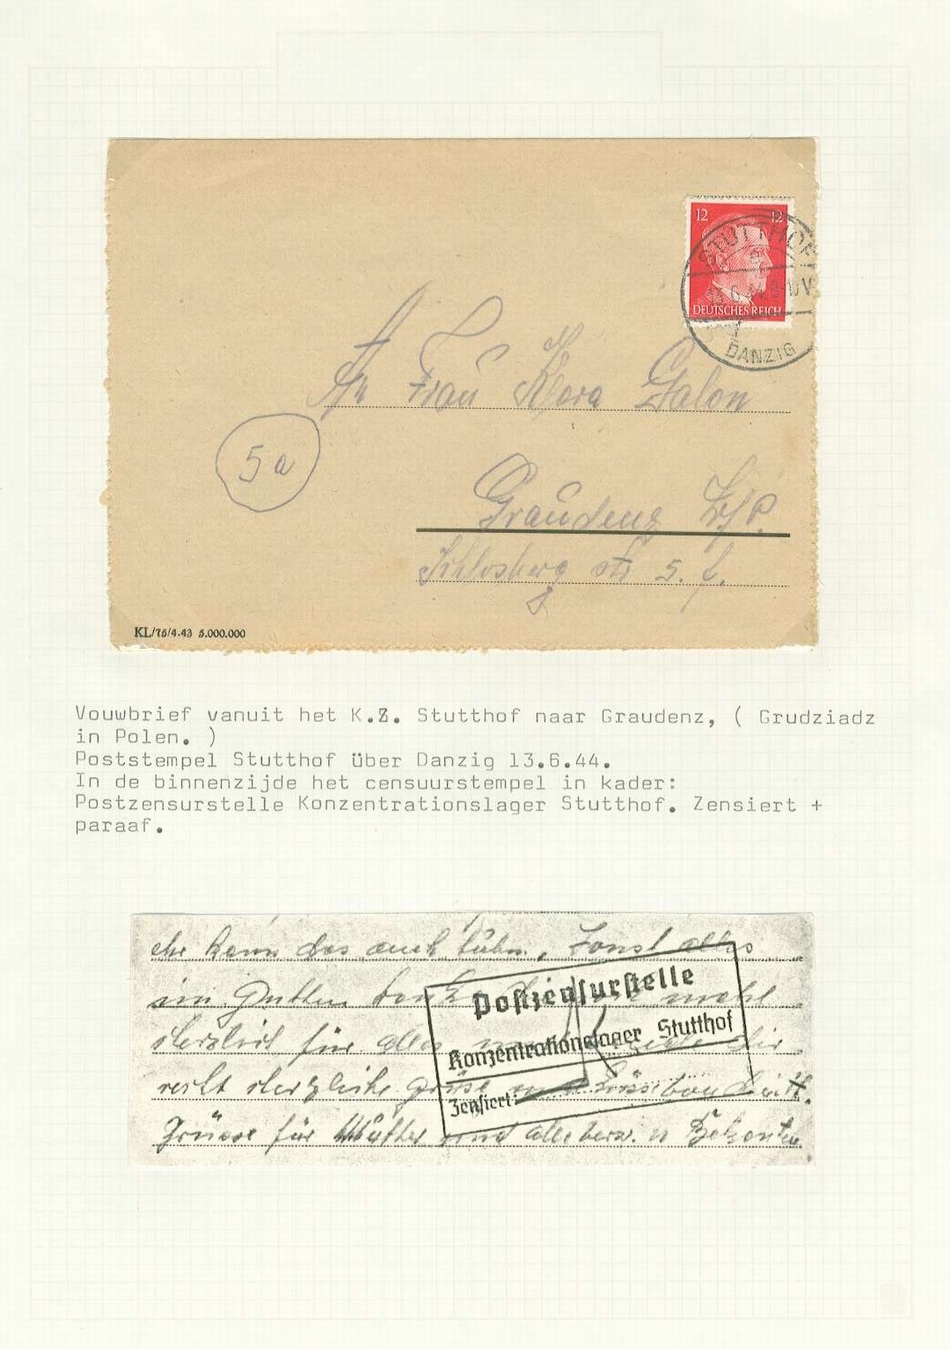 12 12
STUTTHOF
DEUTSCHES REICH
DANZIG
An Frau Klara Galon
5a
Graudenz W/P.
Schlosberg str 5. f.
KL/75/4.43 5.000.000
Vouwbrief vanuit het K.Z. Stutthof naar Graudenz, ( Grudziadz
in Polen. )
Poststempel Stutthof über Danzig 13.6.44.
In de binnenzijde het censuurstempel in kader:
Postzensurstelle Konzentrationslager Stutthof. Zensiert +
paraaf.
kann das auch tuhn, Sonst alles
im Gutten
für alles
recht herzliche grüse
Grüsse für Mutter und alle
Postzensurstelle
Konzentrationslager Stutthof
Zensiert: